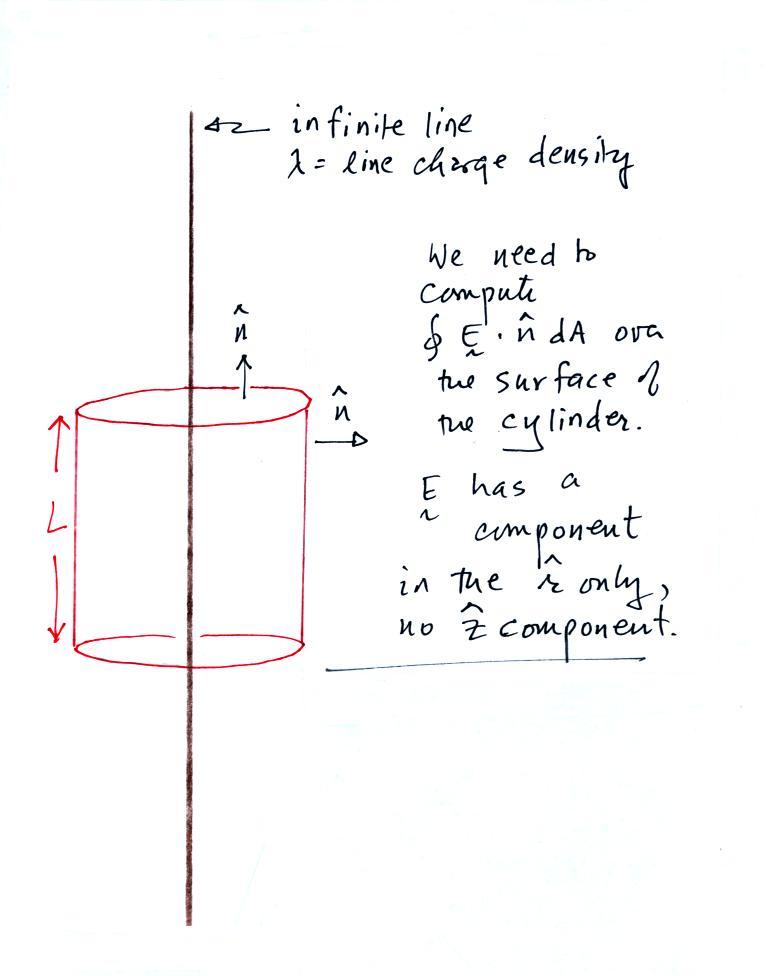 infinite line
λ = line charge density
We need to
compute
∮ Ḛ · n̂ dA over
the surface of
the cylinder.
n̂
n̂
L
Ḛ has a
component
in the r̂ only,
no ẑ component.